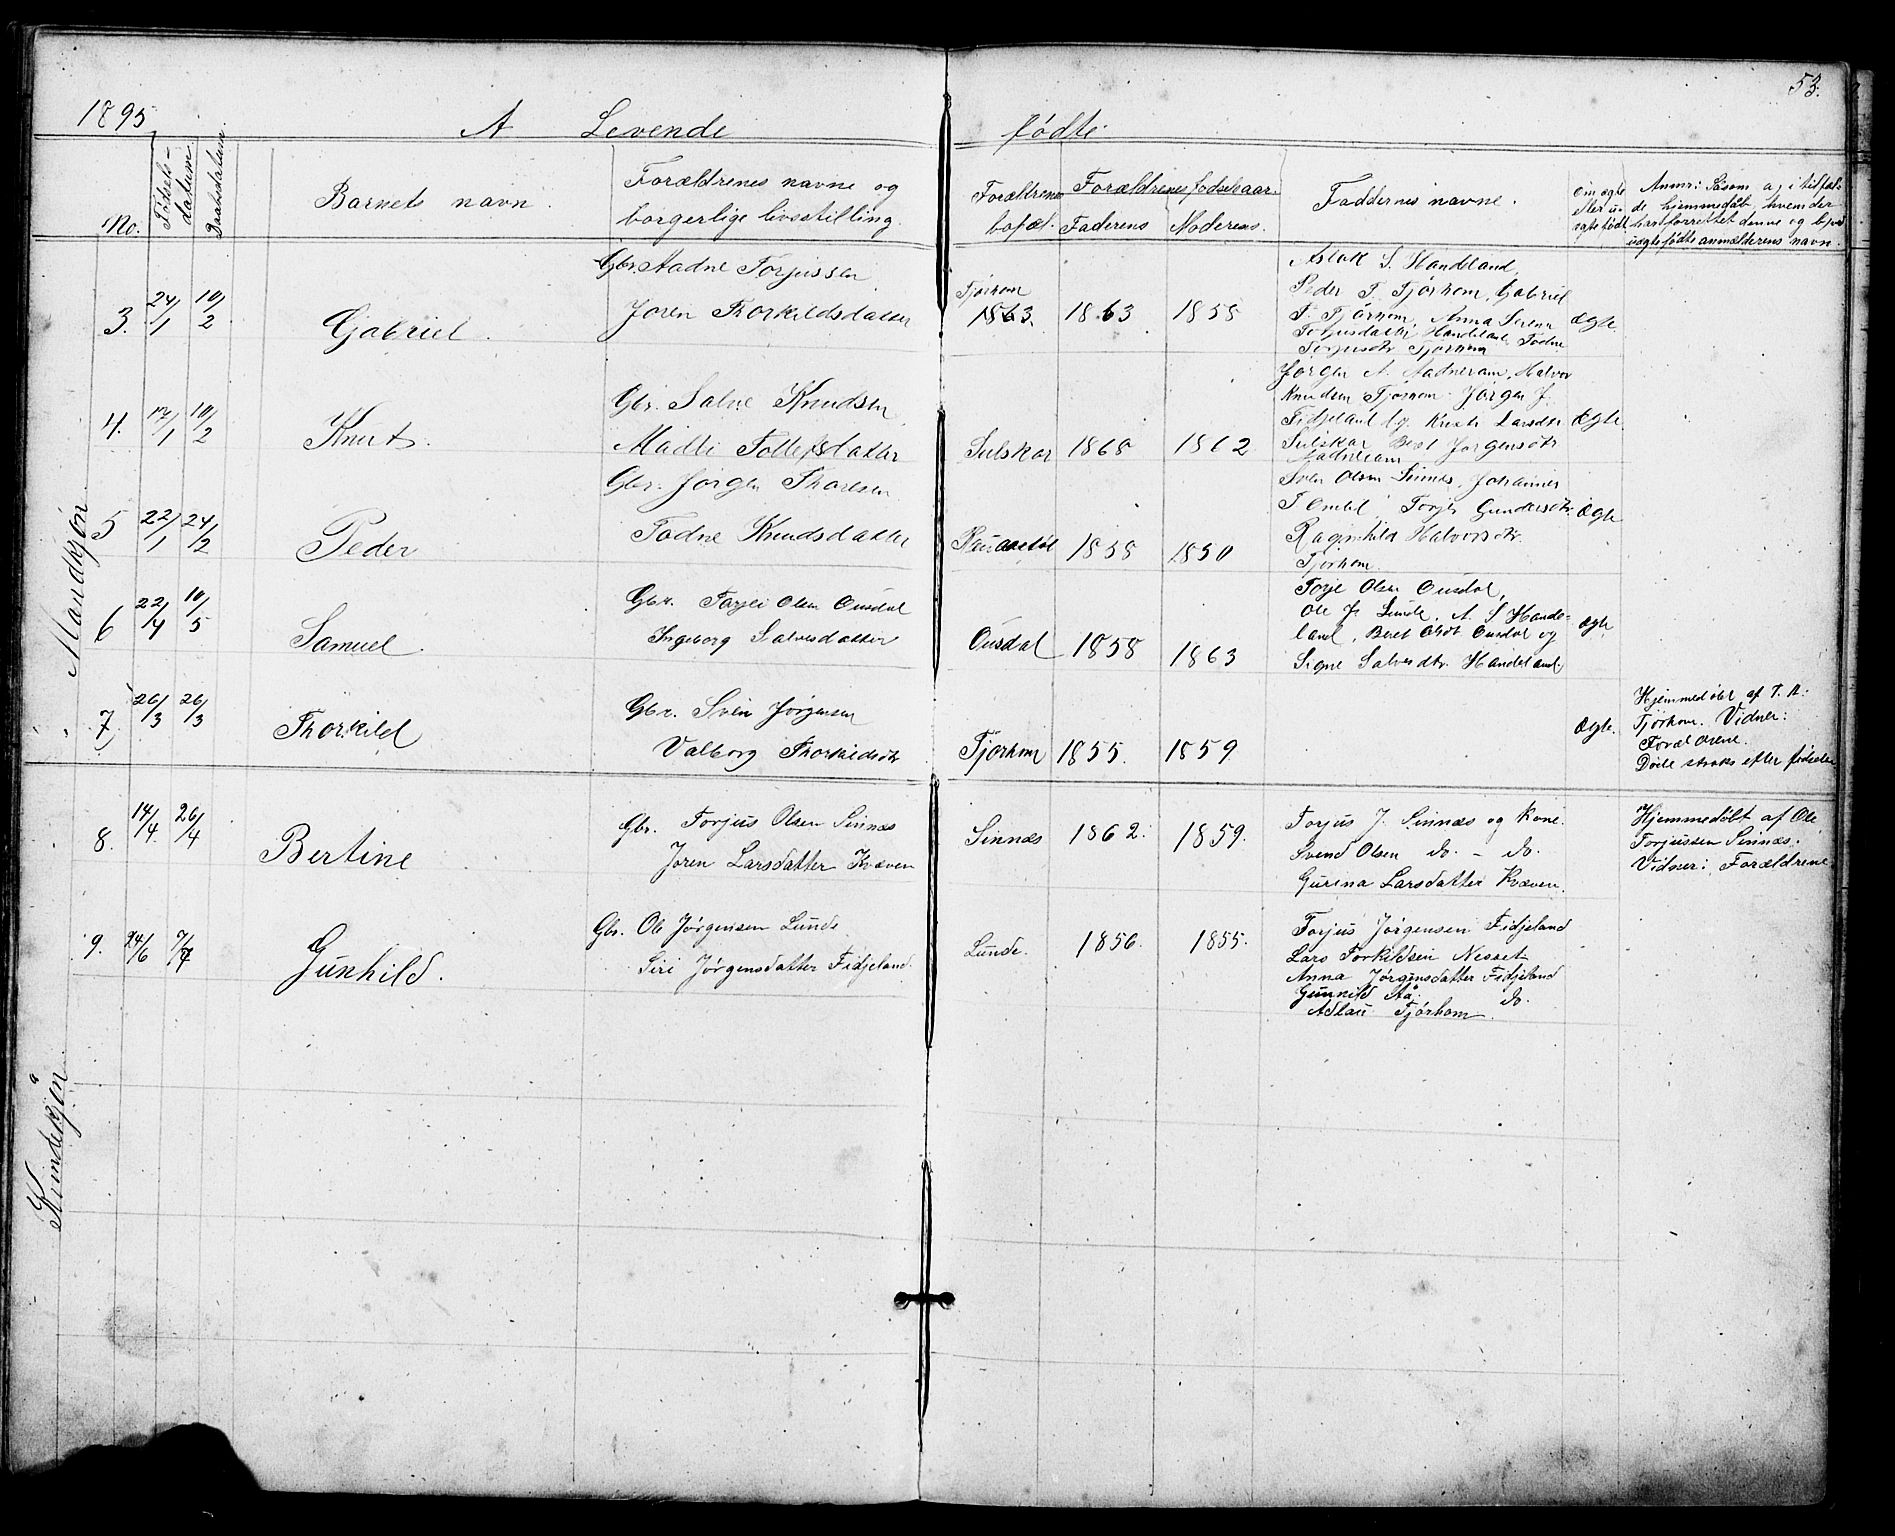 1895
53.
A Levende fødte.
No.
Fødsels-
datum.
Daabsdatum.
Barnets navn.
Forældrenes navne og
borgerlige livsstilling.
Forældrenes
bopæl.
Forældrenes fødselsaar.
Faderens
Moderens.
Faddernes navne.
Om ægte
eller u-
ægte født
Anmr: Såsom a, i tilfæl-
de hjemmedåb, hvem der
har forrettet denne og b, ved
uægte fødte anmælderens navn.
Mandkjøn
3. 24/1 10/2 Gabriel.
Gbr. Aadne Torjussen
Joren Thorkildsdatter
Tjørhom
1863. 1863 1858
Aslak S. Handeland,
Peder T. Tjørhom, Gabriel
T. Tjørhom, Anna Serine
Torjusdatter Handeland Todne
Torjusdtr Tjørhom
Ægte.
4. 17/1 10/2 Knut.
Gbr. Salve Knudsen
Madli Tollefsdatter
Sulskar 1868 1862
Jørgen A. Aadneram, Halvor
Knudsen Tjørhom. Jørgen J.
Fidjeland og Larsdtr
Sulskar, Beret Jørgensdtr
Aadneram
Ægte.
5 22/1 24/2 Peder
Gbr. Jørgen Thorsen
Todne Knudsdatter
1858 1850
Sven Olsen Sinnes, Johannes
T. Gundersdtr.
Ragnhild Halvorsdtr.
Tjørhom.
Ægte
6 22/4 10/5 Samuel.
Gbr. Torjei Olsen Ousdal
Ingeborg Salvesdatter
Ousdal 1858 1863
Torje Olsen Ousdal,
Ole J. Lunde, A. S. Hande-
land, Beret Olsdt Ousdal og
Signe Salvesdtr. Handeland
Ægte.
7. 26/3 26/3 Thorkild
Gbr. Sven Jørgensen
Valborg Thorkildsdtr
Tjørhom 1855. 1859
Ægte.
Hjemmedøbt af T. A.
Tjørhom. Vidner:
Forældrene.
Døde straks efter fødselen
Kvindekjøn
8. 14/4. 26/4 Bertine
Gbr. Torjus Olsen Sinnæs
Joren Larsdatter Kvæven
Sinnæs 1862. 1859.
Torjus J. Sinnæs og Kone.
Svend Olsen do. - do.
Gurina Larsdatter Kvæven.
Hjemmedøbt af Ole
Torjussen Sinnæs.
Vidner: Forældrene
9. 24/6 7/7 Gunhild.
Gbr. Ole Jørgensen Lunde
Siri Jørgensdatter Fidjeland.
Lunde. 1856. 1855.
Torjus Jørgensen Fidjeland
Lars Torkildsen Nesset
Anna Jørgensdatter Fidjeland
Gunhild Aa. do.
Adlau Tjørhom.